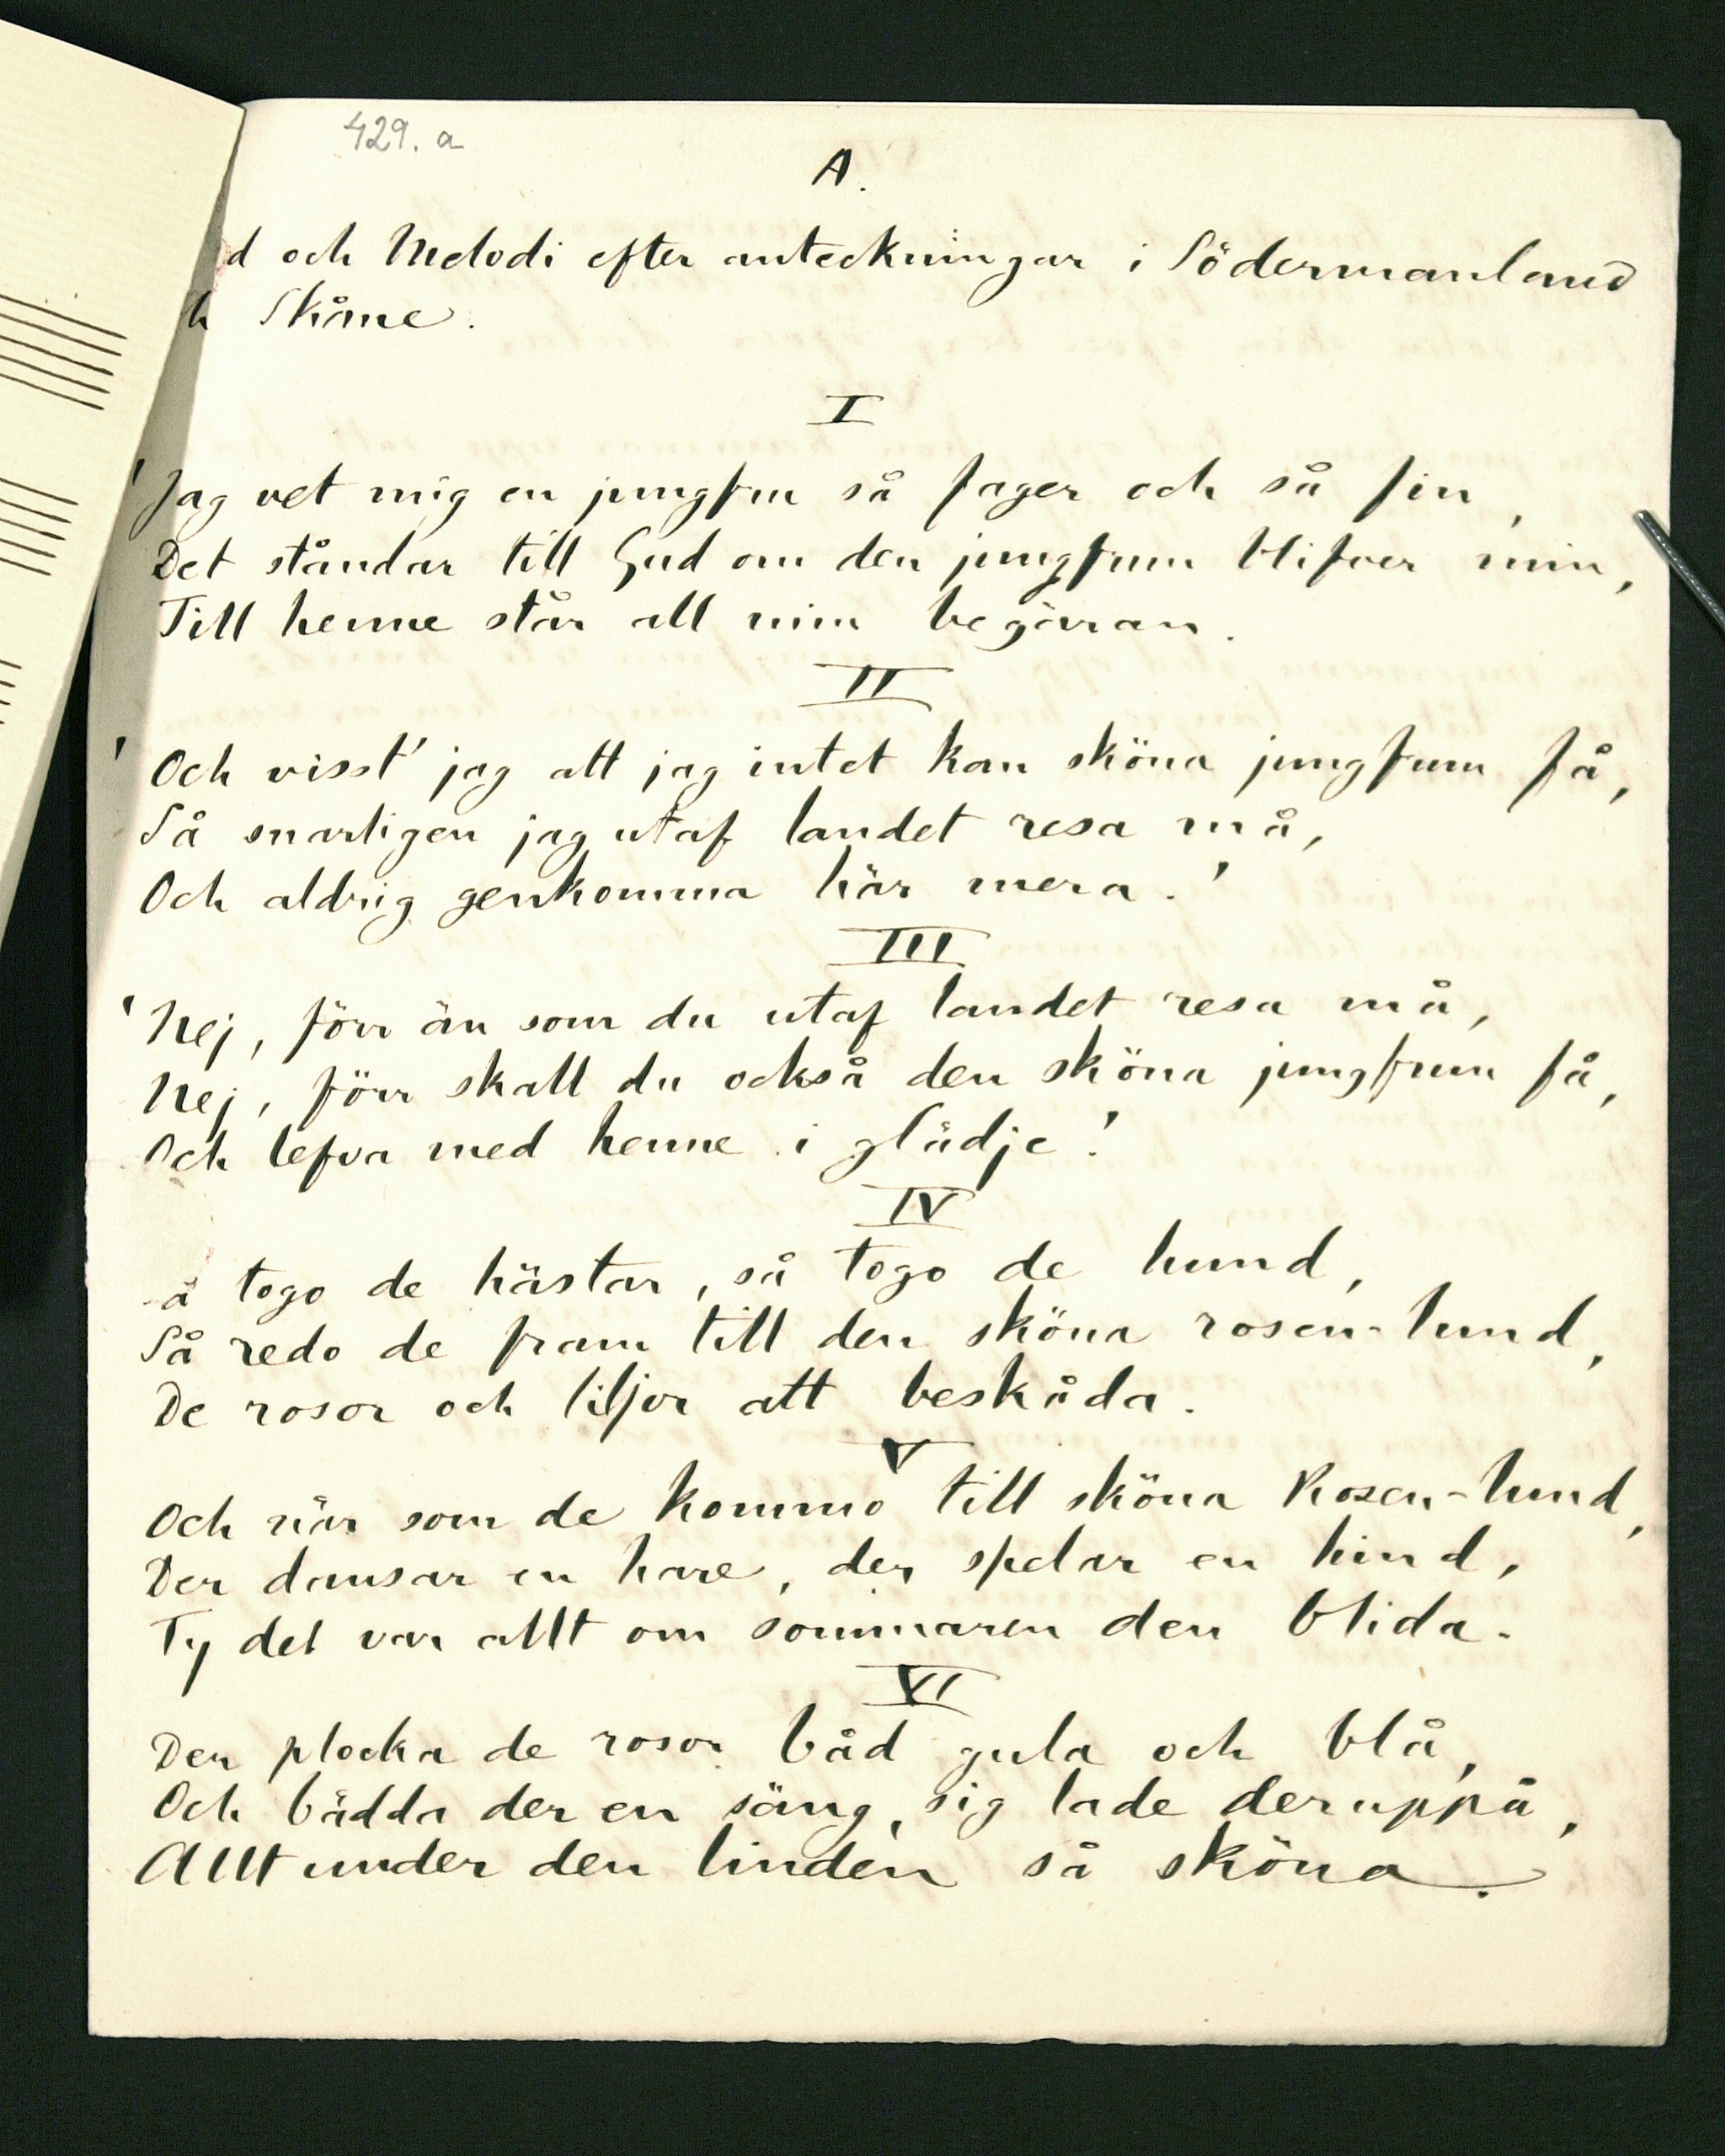 429. a
A.
d och Melodi efter anteckningar i Södermanland
h Skåne.
I
'Jag vet mig en jungfru så fager och så fin,
Det ståndar till Gud om den jungfrun blifver min,
Till henne står all min begäran.
II
'Och visst' jag att jag intet kan sköna jungfrun få,
Så snarligen jag utaf landet resa må,
Och aldrig genkomma här mera.'
III
'Nej, förr än som du utaf landet resa må,
Nej, förr skall du också den sköna jungfrun få,
Och lefva med henne i glädje!
IV
å togo de hästar, så togo de hund,
Så redo de fram till den sköna rosen-lund,
De rosor och liljor att beskåda.
V
Och när som de kommo till sköna Rosen-lund,
Der dansar en hare, der spelar en hind,
Ty det var allt om sommaren den blida.
VI
Der plocka de rosor båd gula och blå,
Och bädda der en säng, sig lade deruppå,
Allt under den linden så sköna.